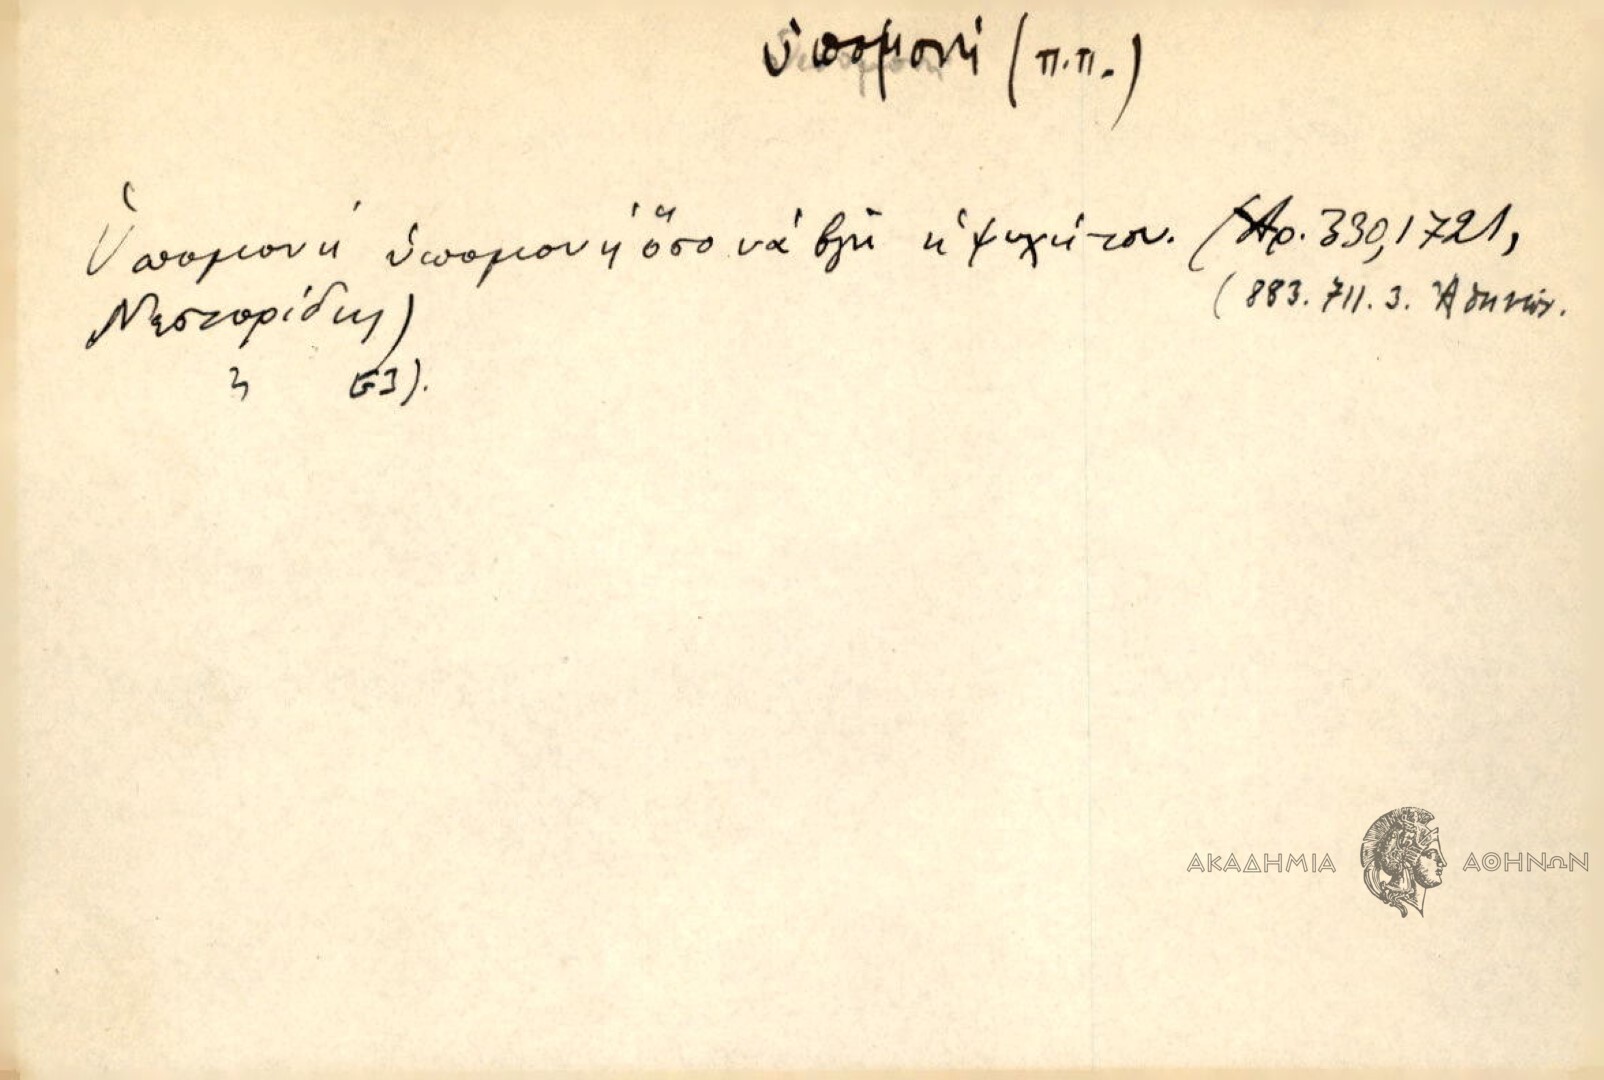 ὑπομονή (π.π.)
Ὑπομονή ὑπομονή ὅσο νά βγῆ ἡ ψυχή του. (Ἀρ. 330, 1721,
(883. 711. 3. Ἀθηνῶν.
Νεστορίδης)
63).
ΑΚΑΔΗΜΙΑ ΑΘΗΝΩΝ